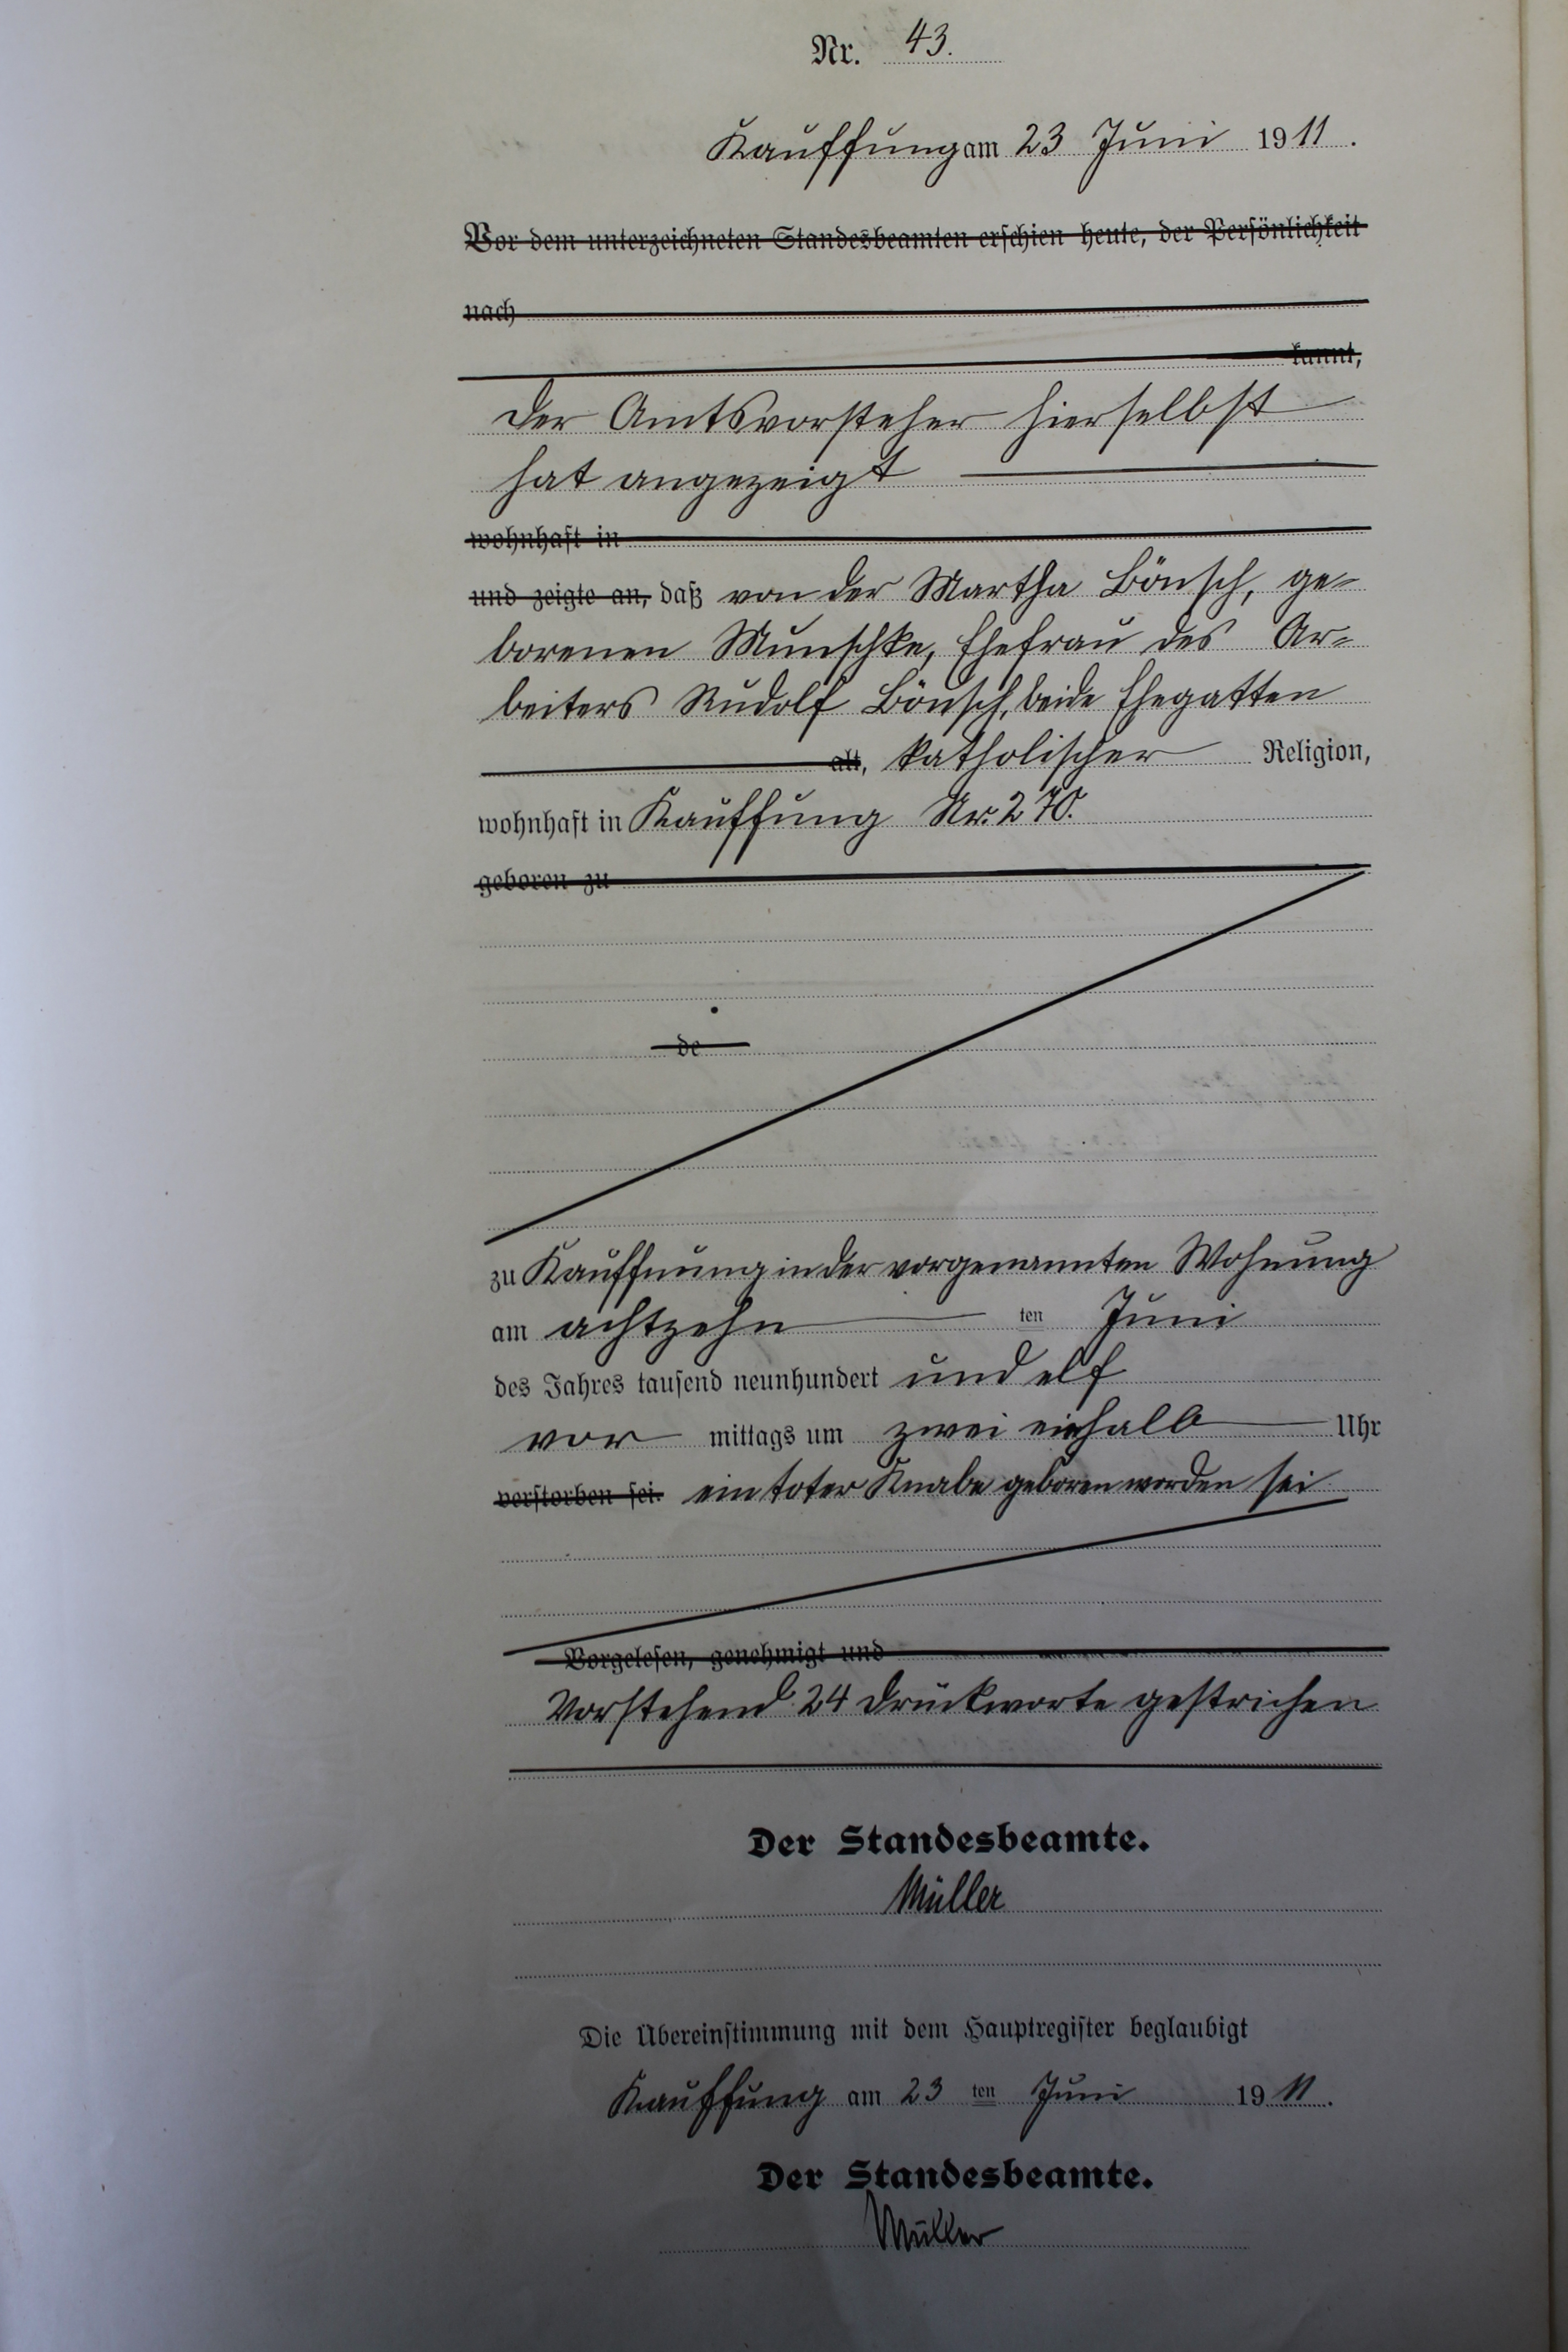 Nr. 43.
Kauffung am 23 Juni 1911.
Vor dem unterzeichneten Standesbeamten erschien heute, der Persönlichkeit
nach
kannt,
der Amtsvorsteher hierselbst
hat angezeigt
wohnhaft in
und zeigte an, daß von der Martha Bönsch, ge=
borenen Munschke, Ehefrau des Ar=
beiters Rudolf Bönsch, beide Ehegatten
alt, katholischer Religion,
wohnhaft in Kauffung Nr. 270.
geboren zu
de
zu Kauffnung in der vorgenannten Wohnung
am achtzehn ten Juni
des Jahres tausend neunhundert und elf
vor mittags um zwei einhalb Uhr
verstorben sei. ein toter Knabe geboren worden sei
Vorgelesen, genehmigt und
Vorstehend 24 Druckworte gestrichen
Der Standesbeamte.
Müller
Die Übereinstimmung mit dem Hauptregister beglaubigt
Kauffung am 23 ten Juni 1911.
Der Standesbeamte.
Müller